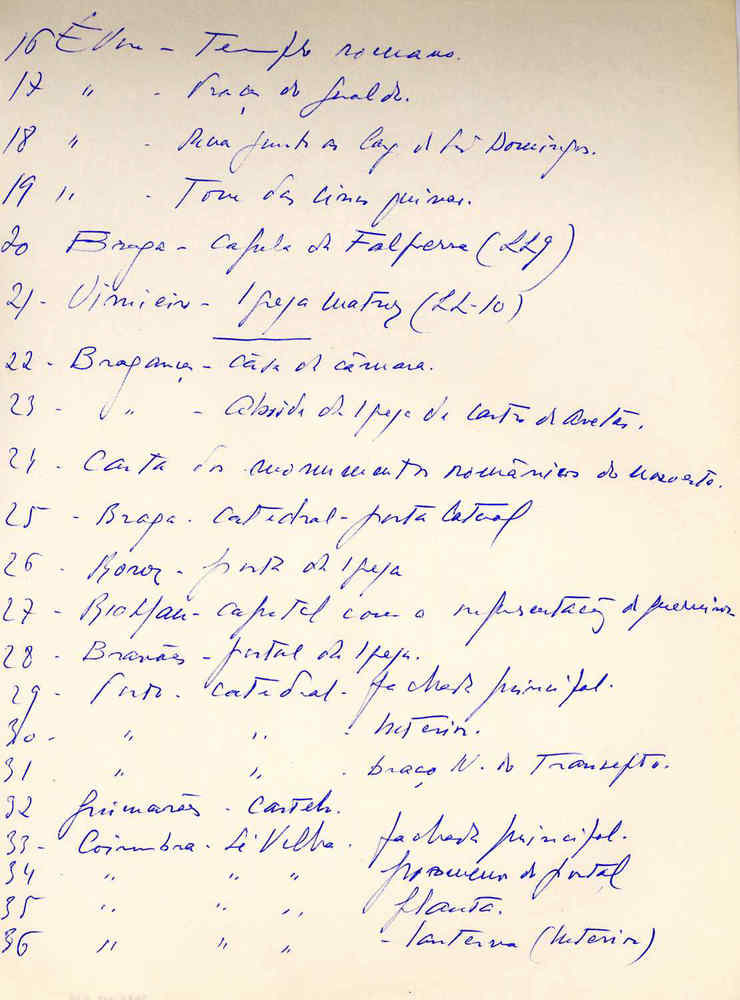 16 Évora - Templo romano.
17 " - Praça do Giraldo.
18 " - Rua junto ao Lag. de São Domingos.
19 " - Torre das cinco quinas.
20 Braga - Capela da Falperra (LL9)
21 - Vimieiro - Igreja matriz (LL-10)
22 - Bragança - Casa da câmara.
23 - " - Abside da Igreja de Castro de Avelãs.
24 - Carta dos monumentos românicos do Noroeste.
25 - Braga - catedral - porta lateral
26 - - porta da Igreja
27 - Rio Mau - capitel com a representação de guerreiros
28 - Bravães - portal da Igreja.
29 - Porto - catedral - fachada principal.
30 - " " - Interior.
31 " " - braço N. do Transepto.
32 Guimarães - Castelo.
33 - Coimbra - Sé Velha - fachada principal.
34 " " " pormenor do portal
35 " " " planta.
36 " " " - lanterna (Interior)